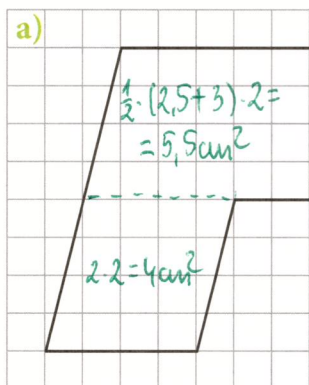 a)
½·(2,5+3)·2=
=5,5cm²
2·2=4cm²